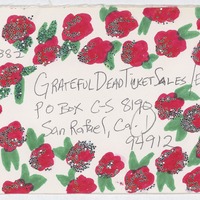 GRATEFUL DEAD TICKET SALES
PO BOX C-S 8190
San Rafael, Ca.
94912